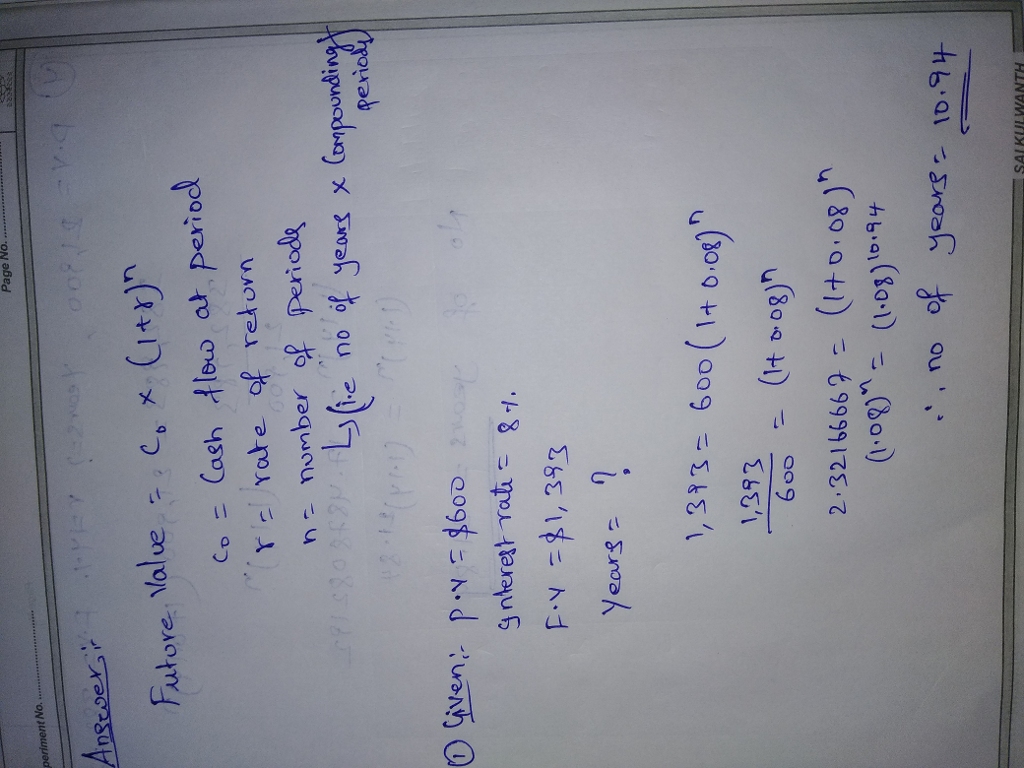 Page No.
periment No.
Answer:-
Future Value = C₀ × (1+r)ⁿ
C₀ = Cash flow at period
r = rate of return
n = number of periods
↳ (i.e no of years × Compounding periods)
① Given:- P.V = $600
Interest rate = 8%
F.V = $1,393
Years = ?
1,393 = 600 (1+0.08)ⁿ
1,393/600 = (1+0.08)ⁿ
2.321666667 = (1+0.08)ⁿ
(1.08)ⁿ = (1.08)^10.94
∴ no of years = 10.94
SAI KULWANTH